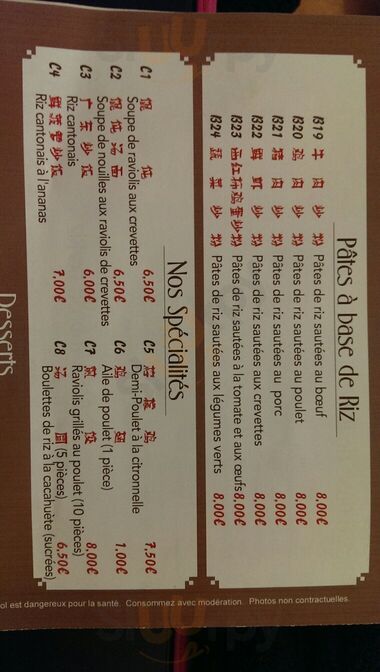 Pâtes à base de Riz
B19 牛肉炒粉 Pâtes de riz sautées au bœuf 8.00€
B20 鸡肉炒粉 Pâtes de riz sautées au poulet 8.00€
B21 猪肉炒粉 Pâtes de riz sautées au porc 8.00€
B22 鲜虾炒粉 Pâtes de riz sautées aux crevettes 8.00€
B23 西红柿鸡蛋炒粉 Pâtes de riz sautées à la tomate et aux œufs 8.00€
B24 蔬菜炒粉 Pâtes de riz sautées aux légumes verts 8.00€
Nos Spécialités
C1 馄饨
Soupe de raviolis aux crevettes 6,50€
C2 馄饨汤面 6,50€
Soupe de nouilles aux raviolis de crevettes
C3 广东炒饭 6,00€
Riz cantonais
C4 鲜菠萝炒饭 7,00€
Riz cantonais à l'ananas
C5
Demi-Poulet à la citronnelle 7,50€
C6 鸡翅
Aile de poulet (1 pièce) 1.00€
C7 煎饺 8.00€
Raviolis grillés au poulet (10 pièces)
C8 汤圆 (5 pièces) 6.50€
Boulettes de riz à la cacahuète (sucrées)
Desserts
ol est dangereux pour la santé. Consommez avec modération. Photos non contractuelles.